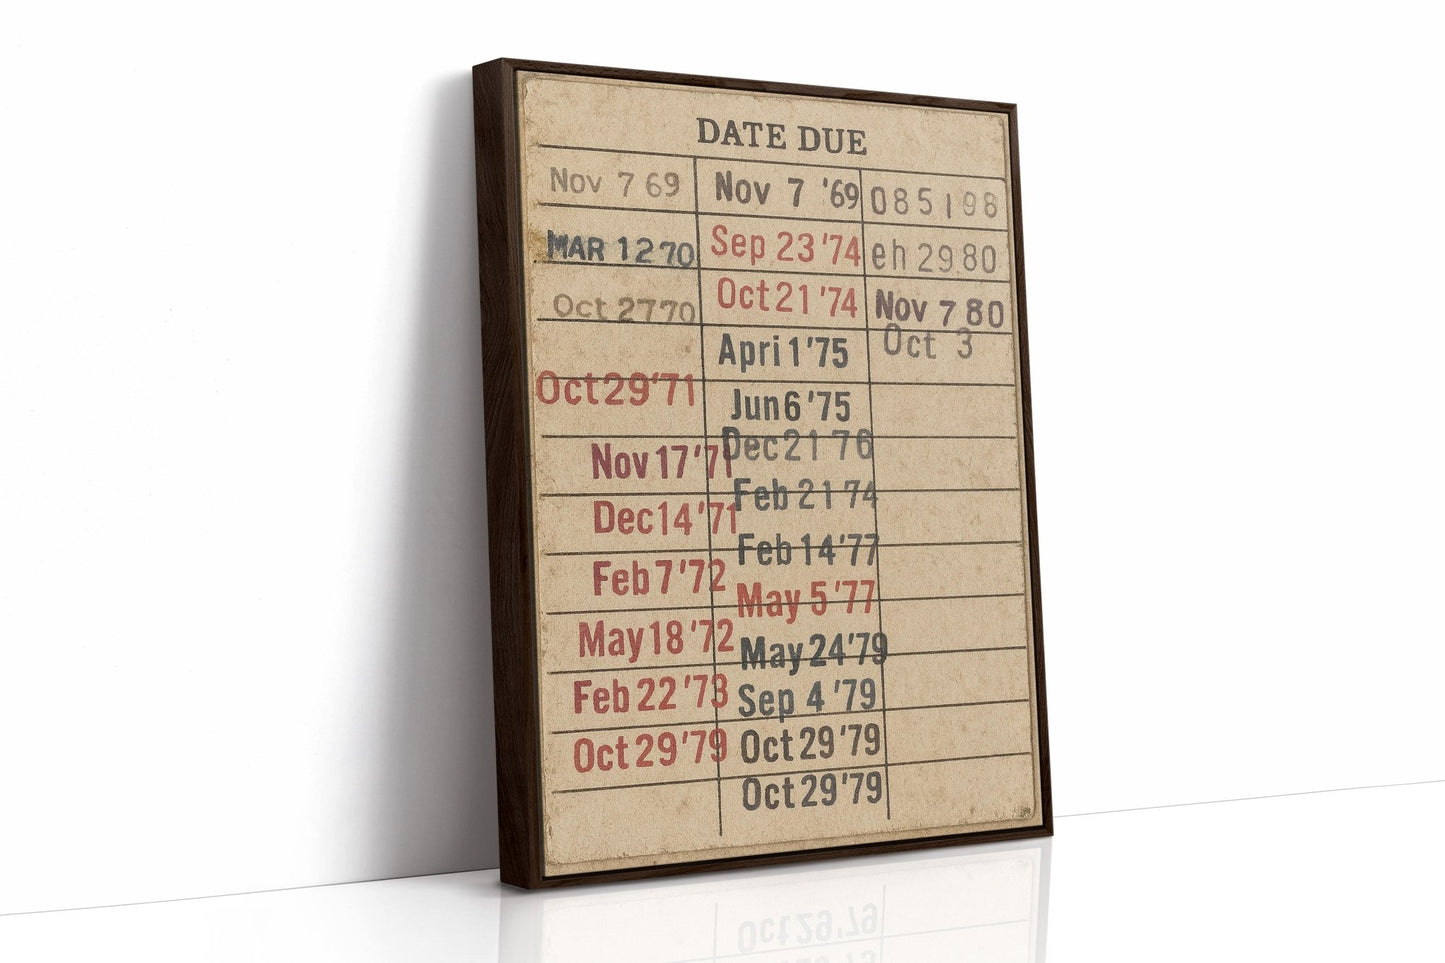 DATE DUE
Nov 7 69
MAR 12 70
Oct 27 70
Oct 29 '71
Nov 17 '71
Dec 14 '71
Feb 7 '72
May 18 '72
Feb 22 '73
Oct 29 '79
Nov 7 '69
Sep 23 '74
Oct 21 '74
Apri 1 '75
Jun 6 '75
Dec 21 76
Feb 21 74
Feb 14 '77
May 5 '77
May 24 '79
Sep 4 '79
Oct 29 '79
Oct 29 '79
085198
eh 29 80
Nov 7 80
Oct 3